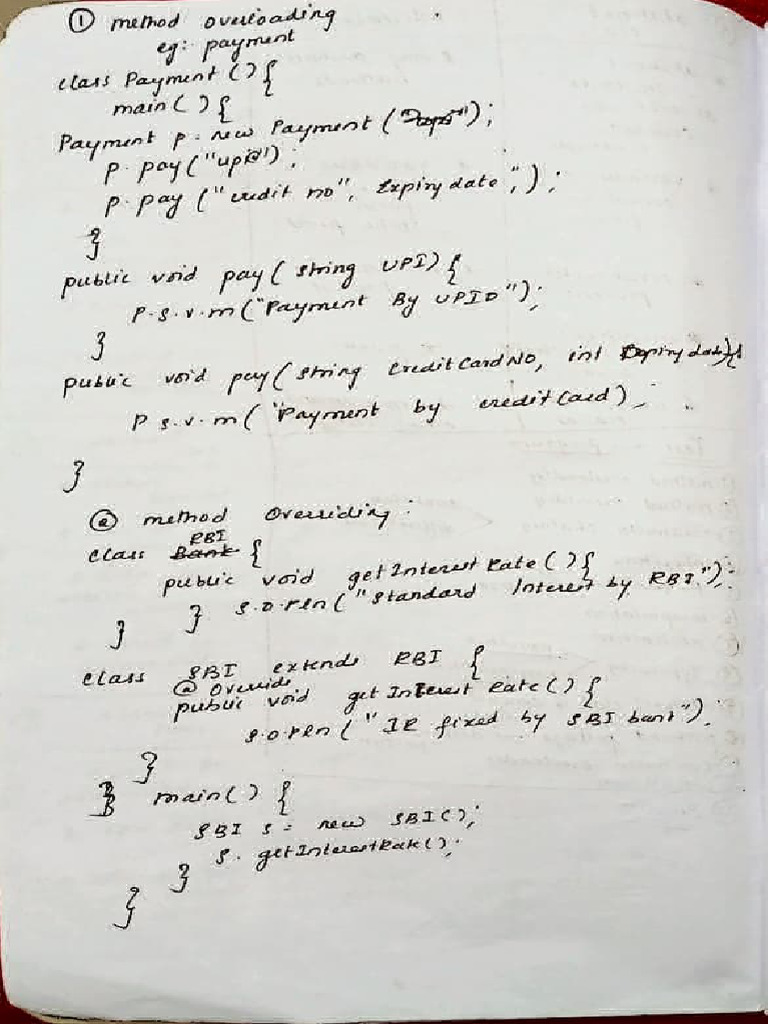 ① method overloading
eg: payment
class Payment () {
main() {
Payment p = new Payment ( );
p. pay("upi@");
p. pay ("credit no", Expiry date ",);
}
public void pay( string UPI) {
P.S.v.m("Payment By UPID");
}
public void pay( string Credit Card NO, int Expiry date) {
P s.v.m( "Payment by credit Card),
}
② method Overriding :
class RBI {
public void get Interest Rate () {
} s.o.pln( "Standard Interest by RBI.");
}
class SBI extends RBI {
@ Override
public void get Interest Rate() {
s.o.pln ( " IR fixed by SBI bank").
}
} main() {
SBI s = new SBI();
s. getInterestRate();
}
}